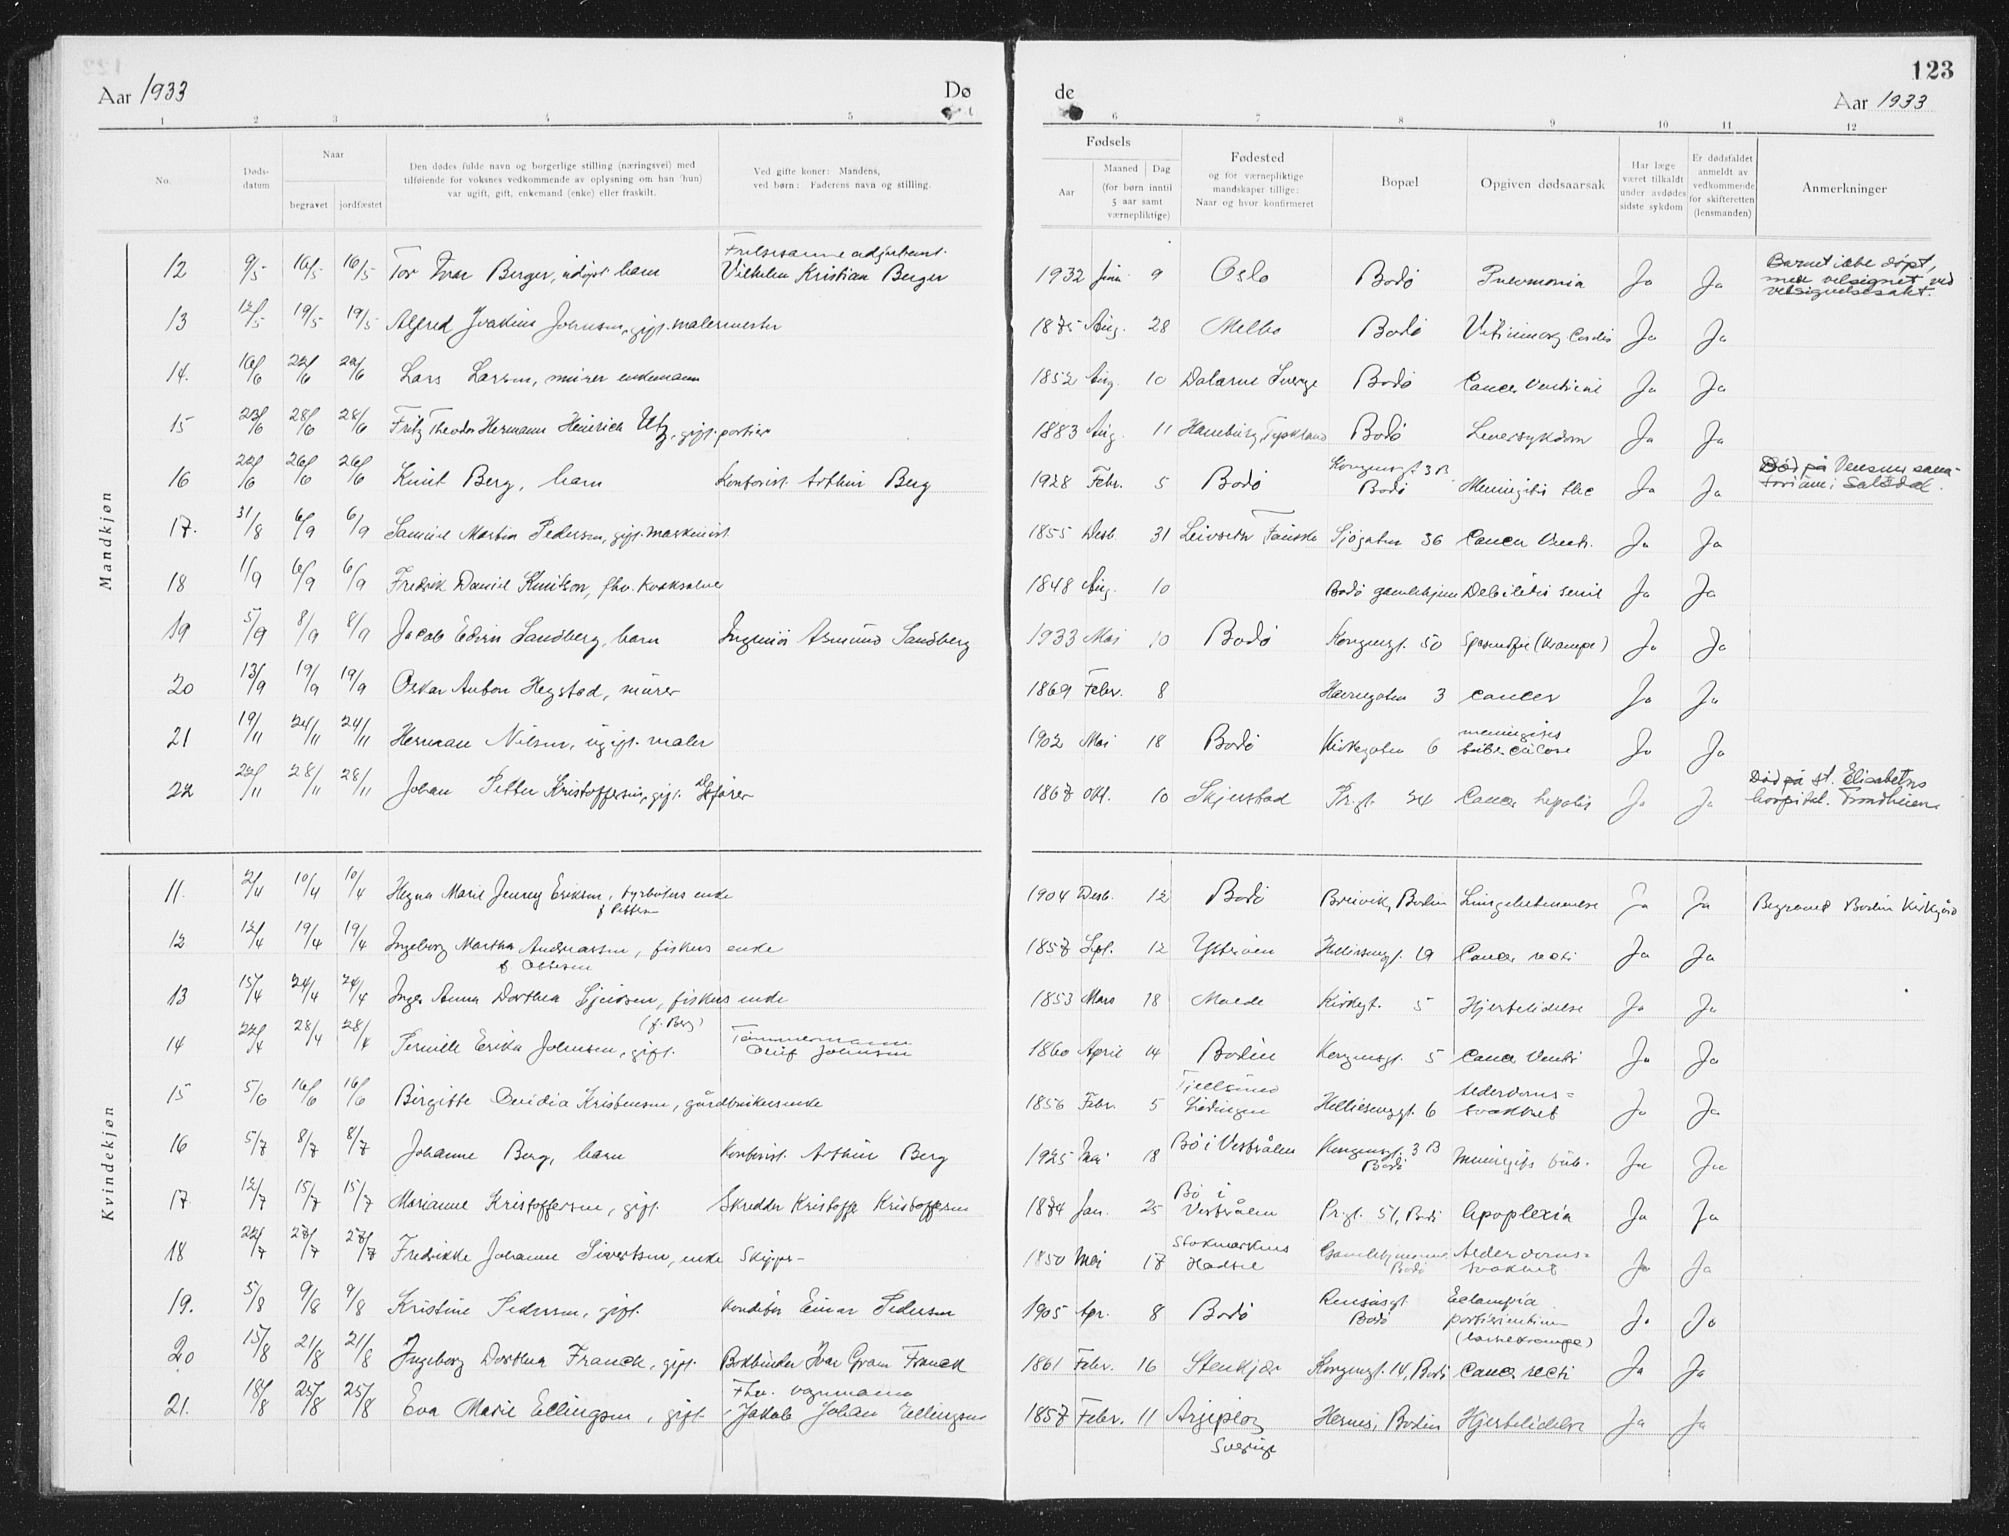 123
Aar 1933 Dø de Aar 1933
1 2 3 4 5 6 7 8 9 10 11 12
No. Døds-datum Naar begravet jordfæstet Den dødes fulde navn og borgerlige stilling (næringsvei) med tilføiende for voksnes vedkommende av oplysning om han (hun) var ugift, gift, enkemand (enke) eller fraskilt. Ved gifte koner: Mandens, ved børn: Faderens navn og stilling. Fødsels Aar Maaned Dag (for børn inntil 5 aar samt værnepliktige) Fødested og for værnepliktige mandskaper tillige: Naar og hvor konfirmeret Bopæl Opgiven dødsaarsak Har læge været tilkaldt under avdødes sidste sykdom Er dødsfaldet anmeldt av vedkommende for skifteretten (lensmanden) Anmerkninger
Mandkjøn
12 9/5 16/5 16/5 Tor Ivar Berger, adopt. barn Frelsesarmeadjutant Vilhelm Kristian Berger 1932 Juni 9 Oslo Bodø Pneumonia Ja Ja Barnet ikke døpt, men velsignet ved velsignelsesakt.
13 12/5 19/5 19/5 Alfred Joakim Johnsen, gift. malermester 1875 Aug. 28 Melbo Bodø Vitium org. Cordis Ja Ja
14. 16/6 22/6 22/6 Lars Larsen, murer enkemann 1852 Aug. 10 Dalarne Sverge Bodø Cancer Ventricul Ja Ja
15 23/6 28/6 28/6 Fritz Theodor Hermann Heinrich Utz, gift. portier 1883 Aug. 11 Hamburg, Tyskland Bodø Leversykdom Ja Ja
16 22/6 26/6 26/6 Knut Berg, barn Kontorist Arthur Berg 1928 Febr. 5 Bodø Kongensgt 3 B. Bodø Meningitis tbc Ja Ja Død på Vensmo sanatorium i Saltdal.
17. 31/8 6/9 6/9 Samuel Martin Pedersen, gift. maskinist 1855 Desb. 31 Leivset Fauske Sjøgaten 36 Cancer Ventr. Ja Ja
18 1/9 6/9 6/9 Fredrik Daniel Knutson, fhv. kvaksalver 1848 Aug. 10 Bodø gamlehjem Debilitas senil Ja Ja
19 5/9 8/9 8/9 Jacob Edvin Sandberg, barn Ingeniør Asmund Sandberg 1933 Mai 10 Bodø Kongensgt. 50 (Krampe) Ja Ja
20 13/9 19/9 19/9 Oskar Anton Hegstad, murer 1869 Febr. 8 Havnegaten 3 Cancer Ja Ja
21 19/11 24/11 24/11 Herman Nilsen, ugift. maler 1902 Mai 18 Bodø Kirkegaten 6 meningitis tuberculose Ja Ja
22 22/11 28/11 28/11 Johan Petter Kristoffersen, gift. 1867 Okt. 10 Skjerstad Pr.gt. 24 Cancer hepatis Ja Ja Død på St. Elisabeths hospital. Trondheim
Kvindekjøn
11. 2/4 10/4 10/4 Hegna Marie Jenny Eriksen, fyrbøters enke f Pettersen 1904 Desb. 12 Bodø Breivik, Bodin Lungebetennelse Ja Ja Begravet Bodin Kirkegård
12 12/4 19/4 19/4 Ingeborg Martha Andreassen, fiskers enke f Ottesen 1857 Sept. 12 Ytterøen Hellesensgt. 19 Cancer recti Ja Ja
13 15/4 24/4 24/4 Inger Anna Dorthea Sjursen, fiskers enke (f. Berg) 1853 Mars 18 Molde Kirkegt. 5 Hjertelidelse Ja Ja
14 22/4 28/4 28/4 Pernille Erika Johnsen, gift. Tømmermann Oluf Johnsen 1860 April 14 Bodin Kongensgt. 5 Cancer Ventr Ja Ja
15 5/6 16/6 16/6 Birgitte Ovidia Kristensen, gårdbrukersenke 1856 Febr. 5 Tjellsund Lødingen Hellesensgt. 6 Alderdoms=svakhet Ja Ja
16 5/7 8/7 8/7 Johanne Berg, barn Kontorist. Arthur Berg 1925 Mai 18 Bø i Vesterålen Kongensgt. 3 B Bodø Meningitis tub. Ja Ja
17 12/7 15/7 15/7 Marianne Kristoffersen, gift. Skredder Kristoffer Kristoffersen 1874 Jan. 25 Bø i Vesterålen Pr.gt. 51, Bodø Apoplexia Ja Ja
18 22/7 27/7 27/7 Fredrikke Johanne Sivertsen, enke Skipper- 1850 Mai 17 Stokmarknes Hadsel Gamlehjemmet Bodø Alderdoms=svakhet Ja Ja
19. 5/8 9/8 9/8 Kristine Pedersen, gift. Konditor Einar Pedersen 1905 Apr. 8 Bodø Rensåsgt Bodø Eclampsia parturientium (barselkrampe) Ja Ja
20 15/8 21/8 21/8 Ingeborg Dorthea Franck, gift. Bokbinder Ivar Gram Franck 1861 Febr. 16 Stenkjær Kongensgt. 14, Bodø Cancer recti Ja Ja
21. 18/8 25/8 25/8 Eva Marie Ellingsen, gift. Fhv. vognmann Jakob Johan Ellingsen 1857 Febr. 11 Arjeplog Sverige Hernes, Bodin Hjertelidelse Ja Ja